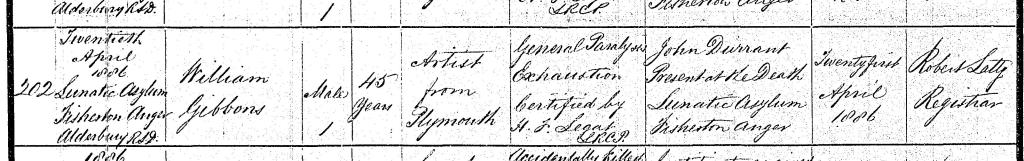 Alderbury R.S.D.
1
L.R.C.P.
Fisherton Anger
202
Twentieth
April
1886
Lunatic Asylum
Fisherton Anger
Alderbury R.S.D.
William
Gibbons
Male
1
45
Years
Artist
from
Plymouth
General Paralysis
Exhaustion
Certified by
L.R.C.P.
John Durrant
Present at the Death
Lunatic Asylum
Fisherton Anger
Twenty first
April
1886
Robert
Registrar
1886
Accidentally Killed